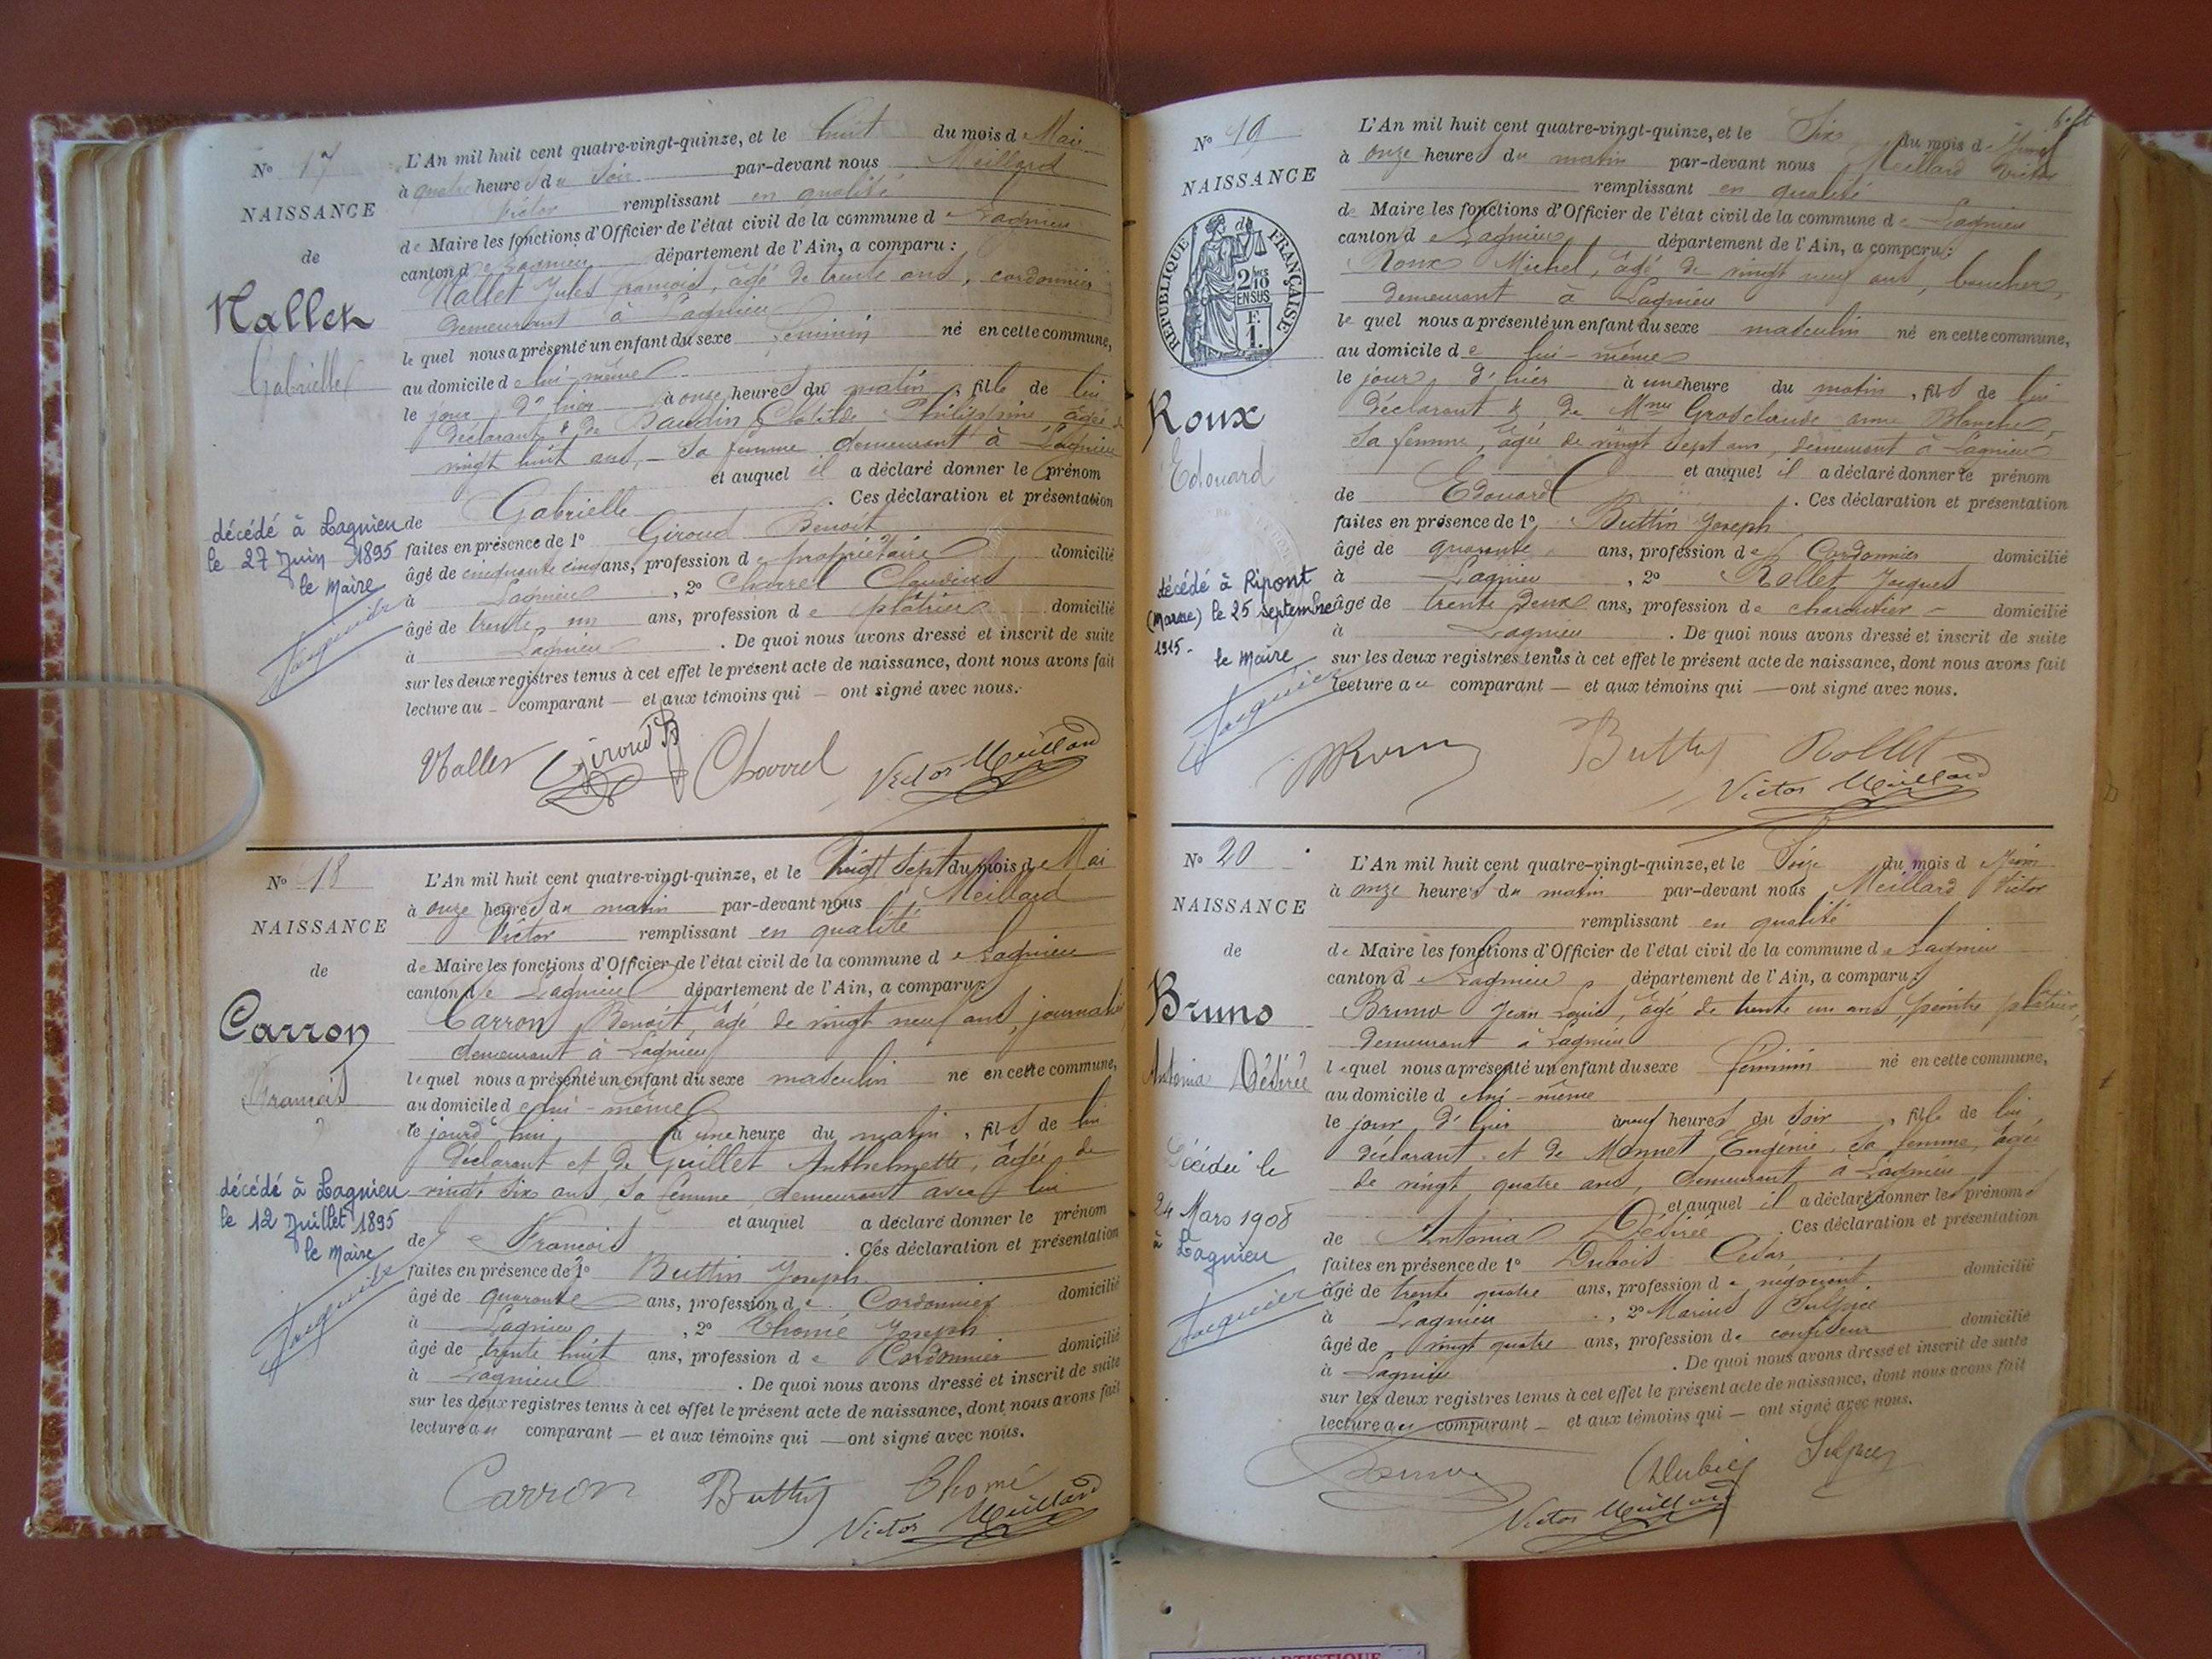 N° 17
NAISSANCE
de
Nallet
Gabrielle
L'An mil huit cent quatre-vingt-quinze, et le huit du mois de Mai
à quatre heures du soir par-devant nous Meillard
Victor remplissant en qualité
de Maire les fonctions d'Officier de l'état civil de la commune de Lagnieu
canton de Lagnieu département de l'Ain, a comparu :
Nallet Jules françois, âgé de trente ans, cordonnier
demeurant à Lagnieu
le quel nous a présenté un enfant du sexe féminin né en cette commune,
au domicile de lui-même
le jour d'hier à onze heures du matin, fille de lui
déclarant & de Baudin Clotilde Philippine âgée de
vingt huit ans, – sa femme demeurant à Lagnieu
et auquel il a déclaré donner le prénom
de Gabrielle . Ces déclaration et présentation
faites en présence de 1° Giroud Benoit
âgé de cinquante cinq ans, profession de propriétaire domicilié
à Lagnieu , 2° Charrel Claudius
âgé de trente un ans, profession de plâtrier domicilié
à Lagnieu . De quoi nous avons dressé et inscrit de suite
sur les deux registres tenus à cet effet le présent acte de naissance, dont nous avons fait
lecture au – comparant — et aux témoins qui — ont signé avec nous.
décédé à Lagnieu
le 27 Juin 1895
le Maire
Jacquier
Nallet Giroud B Charrel Victor Meillard
N° 18
NAISSANCE
de
Carron
François
L'An mil huit cent quatre-vingt-quinze, et le Vingt sept du mois de Mai
à onze heures du matin par-devant nous Meillard
Victor remplissant en qualité
de Maire les fonctions d'Officier de l'état civil de la commune de Lagnieu
canton de Lagnieu département de l'Ain, a comparu :
Carron Benoît, âgé de vingt neuf ans, journalier
demeurant à Lagnieu
le quel nous a présenté un enfant du sexe masculin né en cette commune,
au domicile de lui-même
le jourd'hui, à une heure du matin, fils de lui
déclarant et de Guillet Anthelmette, âgée de
vingt six ans, sa femme demeurant avec lui
et auquel a déclaré donner le prénom
de François . Ces déclaration et présentation
faites en présence de 1° Buttin Joseph
âgé de quarante ans, profession de Cordonnier domicilié
à Lagnieu , 2° Thomé Joseph
âgé de trente huit ans, profession de Cordonnier domicilié
à Lagnieu . De quoi nous avons dressé et inscrit de suite
sur les deux registres tenus à cet effet le présent acte de naissance, dont nous avons fait
lecture au comparant — et aux témoins qui — ont signé avec nous.
décédé à Lagnieu
le 12 Juillet 1895
le Maire
Jacquier
Carron Buttin Thomé
Victor Meillard
N° 19
NAISSANCE
RÉPUBLIQUE FRANÇAISE
2/10 EN SUS
F. 1.
Roux
Edouard
L'An mil huit cent quatre-vingt-quinze, et le Six du mois de Juin
à onze heures du matin par-devant nous Meillard Victor
remplissant en qualité
de Maire les fonctions d'Officier de l'état civil de la commune de Lagnieu
canton de Lagnieu département de l'Ain, a comparu :
Roux Michel, âgé de vingt neuf ans, boucher,
demeurant à Lagnieu
le quel nous a présenté un enfant du sexe masculin né en cette commune,
au domicile de lui-même
le jour d'hier à une heure du matin, fils de lui
déclarant & de Mme Grosclaude anne Blanche,
sa femme, âgée de vingt sept ans, demeurant à Lagnieu
et auquel il a déclaré donner le prénom
de Edouard . Ces déclaration et présentation
faites en présence de 1° Buttin Joseph
âgé de quarante ans, profession de Cordonnier domicilié
à Lagnieu , 2° Rollet Jacques
âgé de trente deux ans, profession de charcutier – domicilié
à Lagnieu . De quoi nous avons dressé et inscrit de suite
sur les deux registres tenus à cet effet le présent acte de naissance, dont nous avons fait
lecture au comparant — et aux témoins qui — ont signé avec nous.
décédé à Ripont
(Marne) le 25 septembre
1915 –
le Maire
Jacquier
Roux Buttin Rollet
Victor Meillard
N° 20
NAISSANCE
de
Bruno
Antonia Désirée
L'An mil huit cent quatre-vingt-quinze, et le Seize du mois de Juin
à onze heures du matin par-devant nous Meillard Victor
remplissant en qualité
de Maire les fonctions d'Officier de l'état civil de la commune de Lagnieu
canton de Lagnieu département de l'Ain, a comparu :
Bruno Jean Louis, âgé de trente un ans peintre plâtrier,
demeurant à Lagnieu
lequel nous a présenté un enfant du sexe féminin né en cette commune,
au domicile de lui-même
le jour d'hier à neuf heures du soir, fille de lui
déclarant et de Monnet Eugénie, sa femme, âgée
de vingt quatre ans, demeurant à Lagnieu
et auquel il a déclaré donner les prénoms
de Antonia Désirée . Ces déclaration et présentation
faites en présence de 1° Dubois César
âgé de trente quatre ans, profession de négociant domicilié
à Lagnieu , 2° Marius Sulpice
âgé de vingt quatre ans, profession de confiseur domicilié
à Lagnieu . De quoi nous avons dressé et inscrit de suite
sur les deux registres tenus à cet effet le présent acte de naissance, dont nous avons fait
lecture au comparant – et aux témoins qui — ont signé avec nous.
Décédée le
24 Mars 1908
à Lagnieu
Jacquier
Bruno Sulpice
Victor Meillard